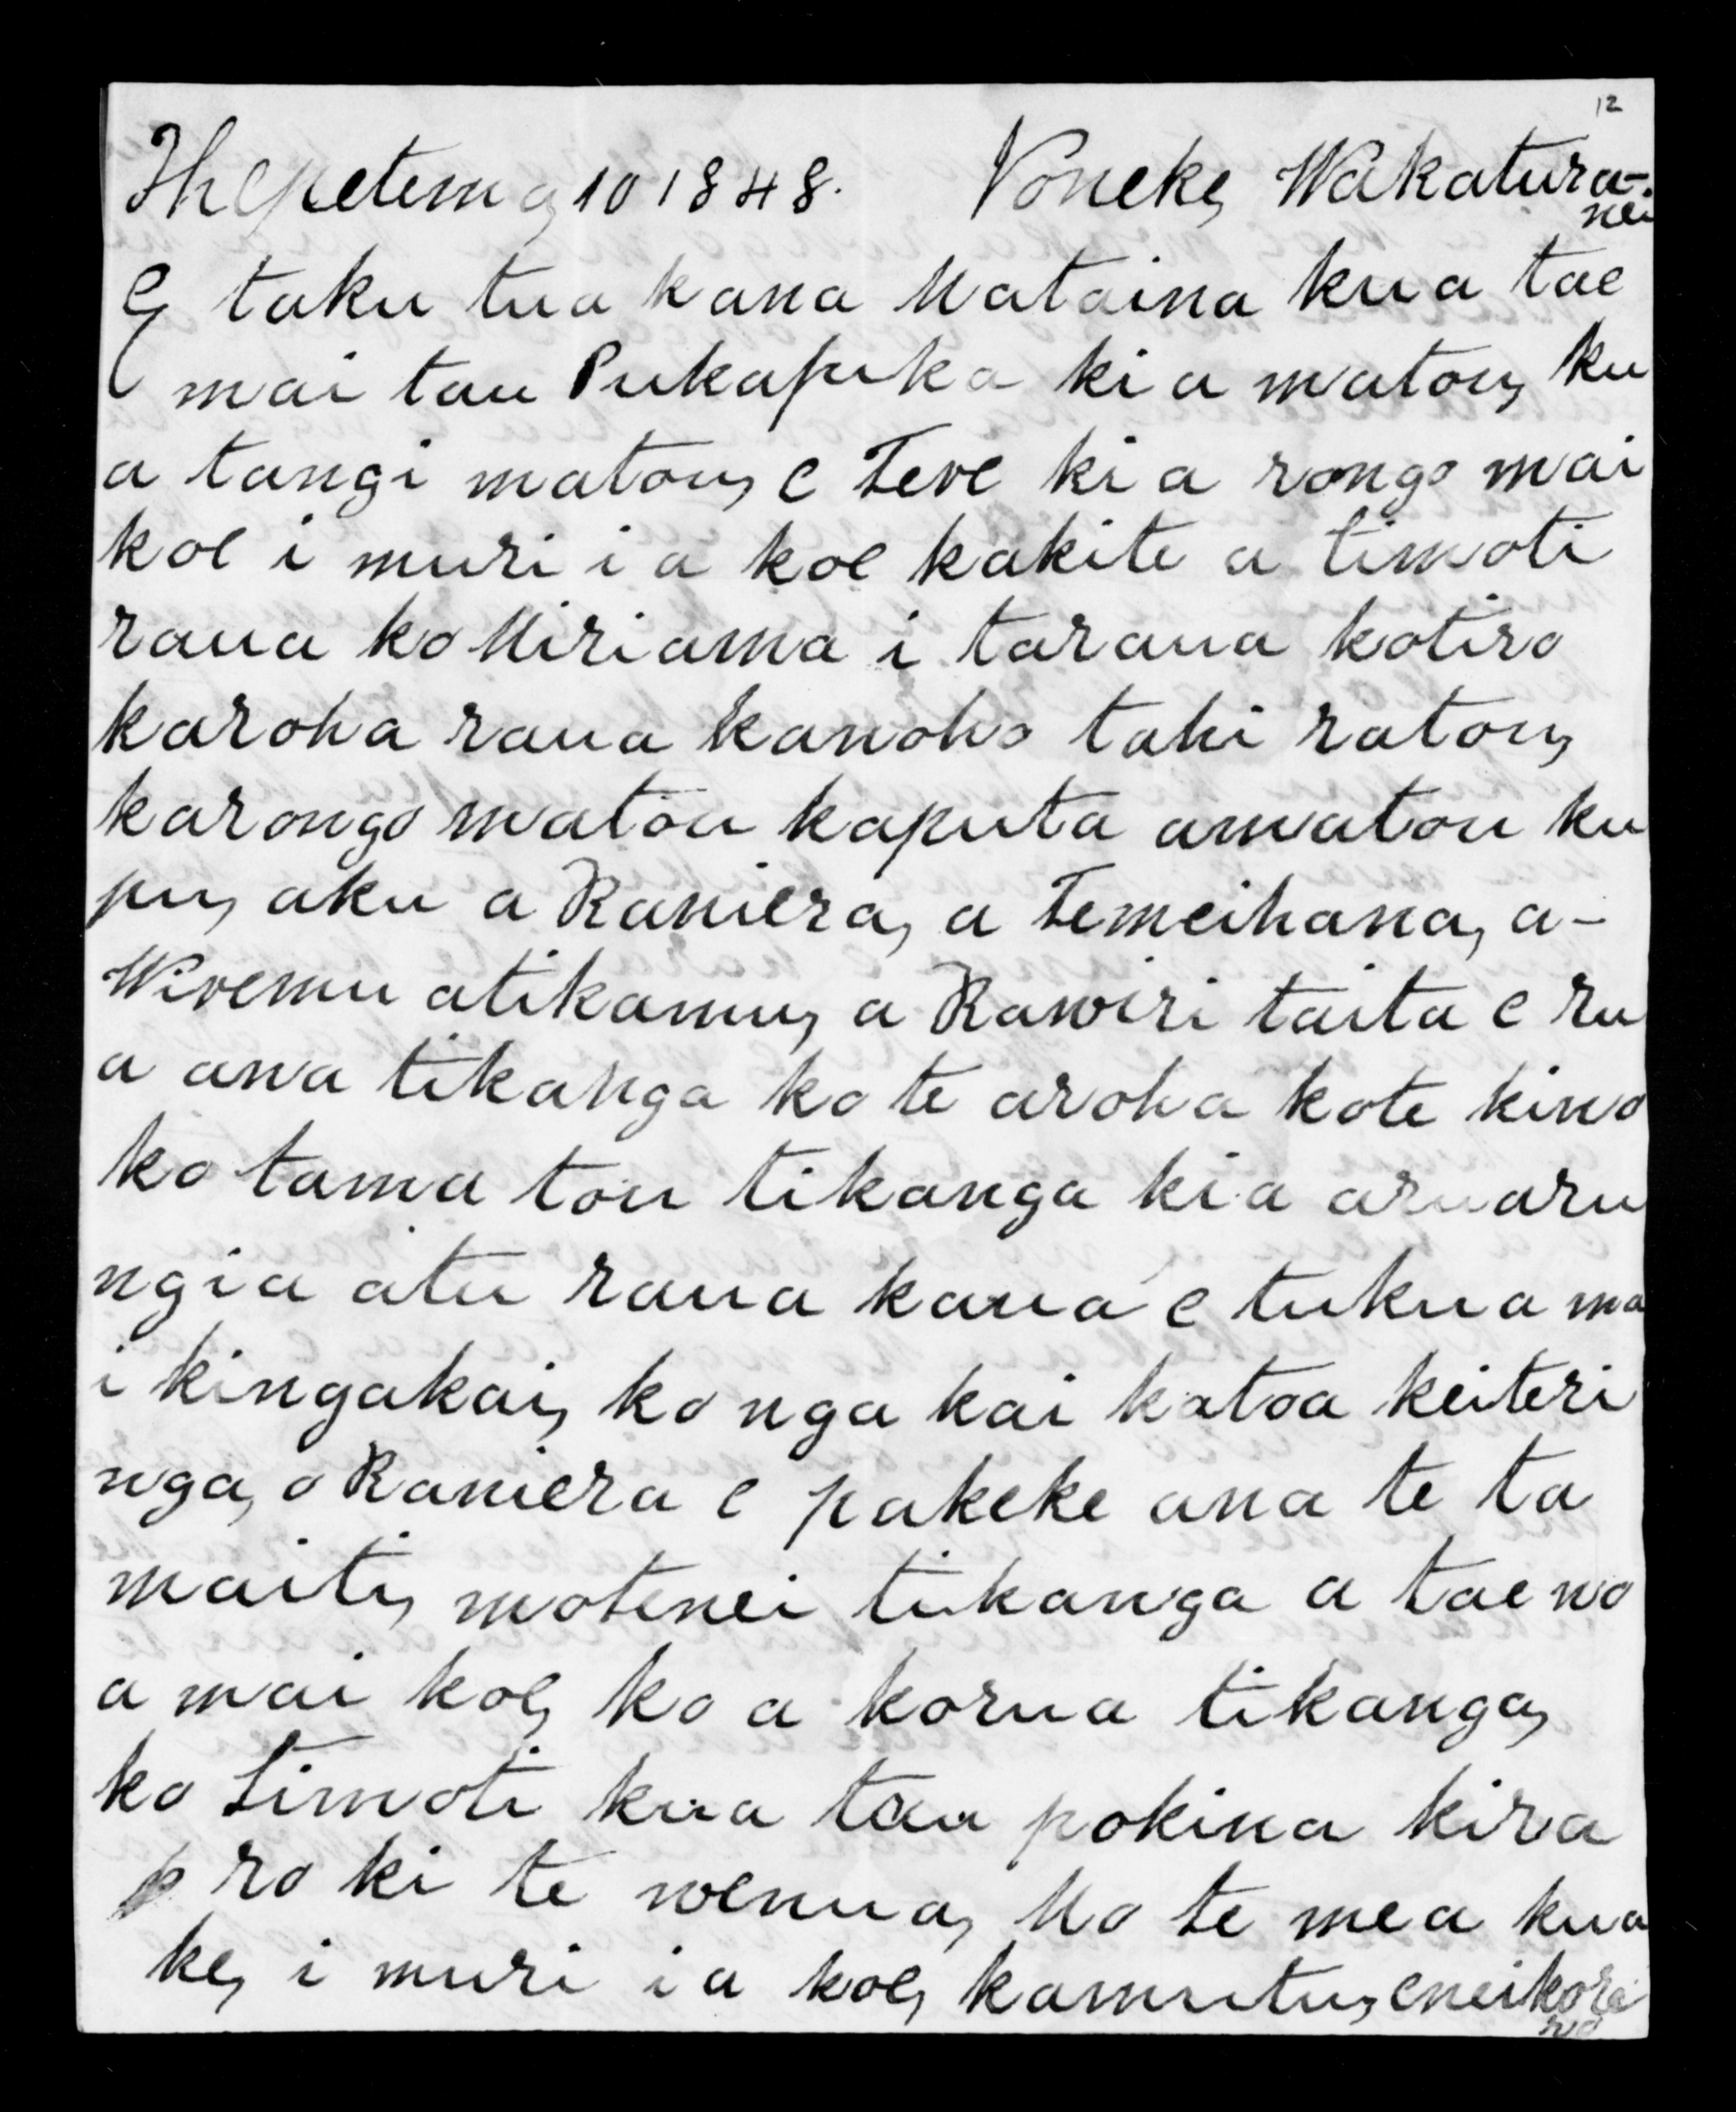 12
Hepetema 10 1848. Poneke, Wakatura-
nei
E taku tuakana Mataina kua tae
mai tau Pukapuka ki a matou, ku
a tangi matou, e Teve ki a rongo mai
koe i muri i a koe kakite a timoti
raua ko Miriama i taraua kotiro
karoha raua kanoho tahi ratou,
karongo matou kaputa amatou ku
pu, aku a Raniera, a Temeihana, a-
Wiremu atikamu, a Rawiri taita e ru
a ana tikanga ko te aroha kote kino
ko tama tou tikanga ki a aruaru
ngia atu raua kaua e tukua ma
i kingakai, ko nga kai katoa keiteri
nga, o Raniera e pakeke ana te ta
maiti, motenei tikanga a tae no
a mai koe, ko a korua tikanga,
ko Timoti kua tau pokina kira
ro ki te wenua, Mo te mea kua
ke, i muri i a koe, kamutu, eneikore
ro